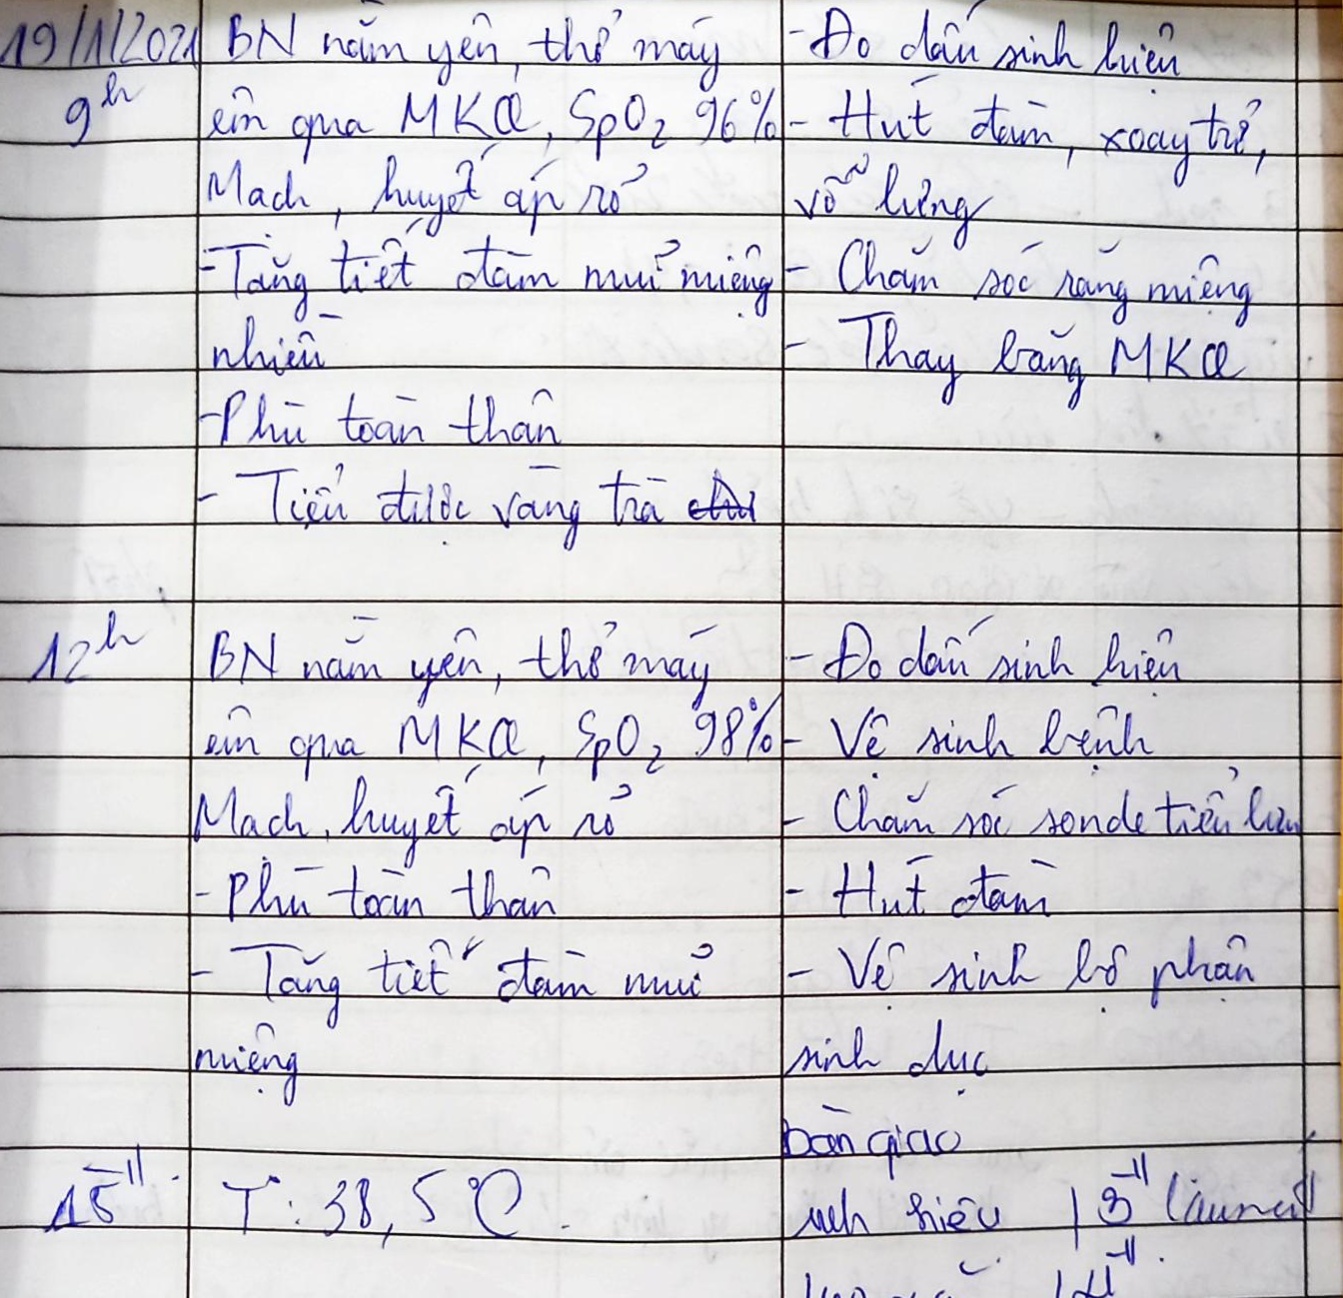 19/1/2021
9h
BN nằm yên, thở máy
êm qua MKQ, SpO2 96%
Mạch, huyết áp rõ
- Tăng tiết đàm mũi miệng
nhiều
- Phù toàn thân
- Tiểu được vàng trà
- Đo dấu sinh hiệu
- Hút đàm, xoay trở,
vỗ lưng
- Chăm sóc răng miệng
- Thay băng MKQ
12h
BN nằm yên, thở máy
êm qua MKQ, SpO2 98%
Mạch, huyết áp rõ
- Phù toàn thân
- Tăng tiết đàm mũi
miệng
- Đo dấu sinh hiệu
- Vệ sinh bệnh
- Chăm sóc sonde tiểu lưu
- Hút đàm
- Vệ sinh bộ phận
sinh dục
bàn giao
15H
T: 38,5°C.
sinh hiệu